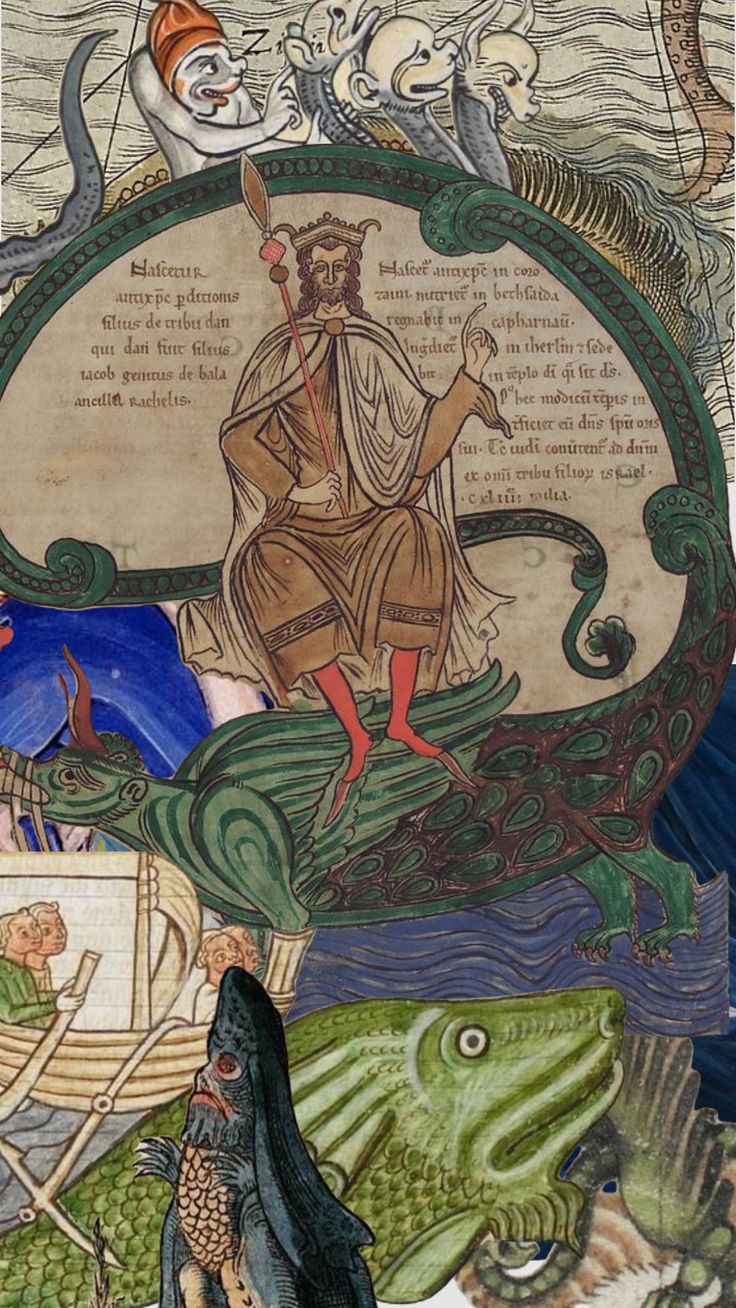 Nascetur
antixp̄c ꝑditionis
filius de tribu dan
qui dan fuit filius
iacob genitus de bala
ancilla rachelis.
Nascet᷑ antixp̄c in coro
zaim nutriet᷑ in bethsaida
regnabit in capharnaū.
Ingdiet᷑ in iherlm̄ ⁊ sede
bit in tēplo dī q̄si sit ds̄.
Pº hec modicū tēpis in
t̄ficiet eū dn̄s spū oris
sui. Tc̄ iudi conūtent᷑ ad dn̄m
ex om̄i tribu filioꝝ israel.
cxliiii milia.